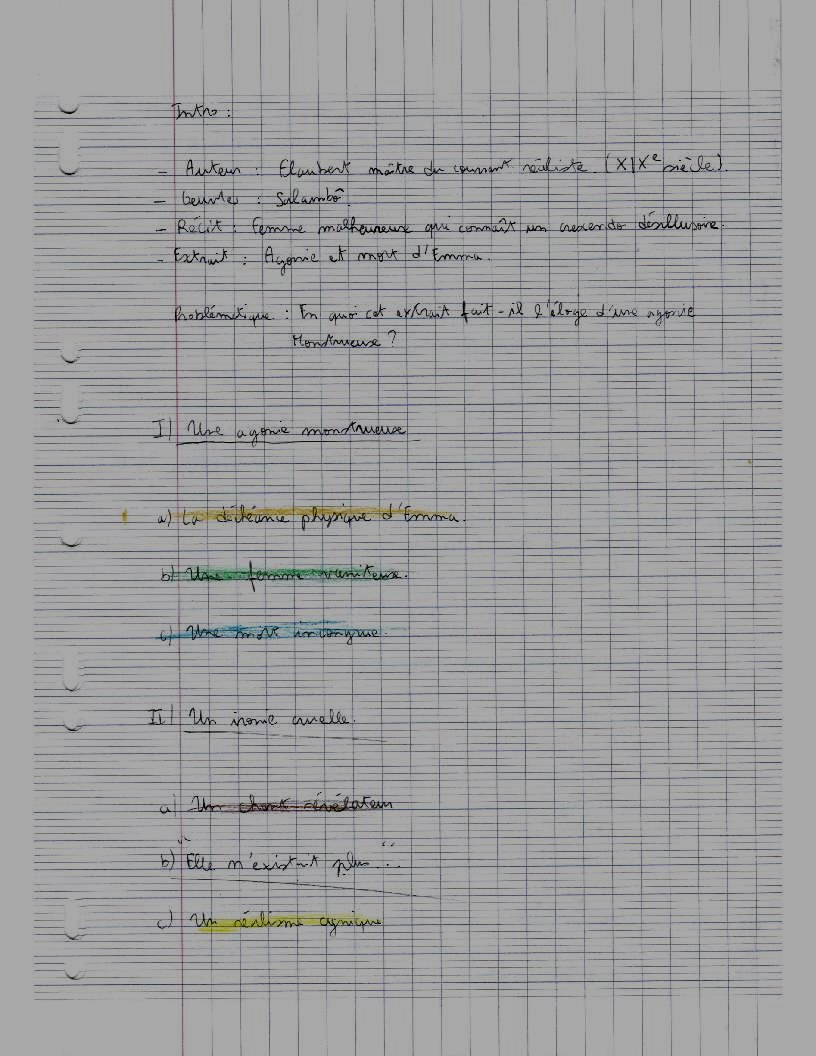 Intro :
- Auteur : Flaubert maître du courant réaliste. (XIXe siècle).
- Oeuvre : Salambô.
- Récit : Femme malheureuse qui connaît un crescendo désillusoire.
- Extrait : Agonie et mort d'Emma.
Problématique : En quoi cet extrait fait-il l'éloge d'une agonie
Monstrueuse ?
I) Une agonie monstrueuse
a) La déchéance physique d'Emma.
b) Une femme vaniteuse.
c) Une mort incongrue.
II) Un ironie cruelle.
a) Un chant révélateur
b) "Elle n'existait plus..."
c) Un réalisme cynique